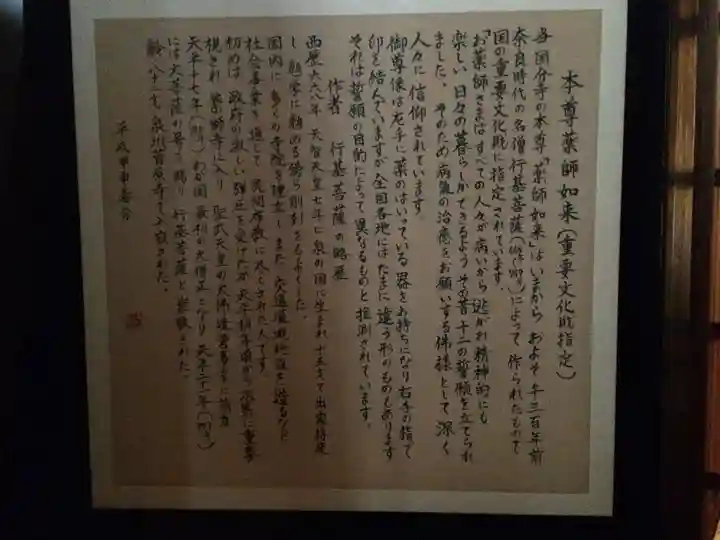 本尊薬師如来(重要文化財指定)
当国分寺の本尊「薬師如来」はいまから およそ千三百年前
奈良時代の名僧行基菩薩( )によって 作られたもので
国の重要文化財に指定されています
「お薬師さまは すべての人々が病いから 逃がれ精神的にも
楽しい日々の暮らしができるよう その昔十二の誓願を立てられ
ました。そのため病気の治癒をお願いする佛様として 深く
人々に信仰されています。
御尊像は左手に薬のはいっている器をお持ちになり右手の指で
印を結んでいますが全国各地にはたまに違う形のものもあります
それは誓願の目的によって異なるものと推測されています。
作者 行基菩薩の略歴
西暦六六八年 天智天皇七年に泉の国に生まれ 十五才で出家得度
し 勉学に努める傍ら
国内に多くの寺院を建立し また 交通灌漑施設を造るなど
社会事業を通じて 民間布教に尽くされた人です
初めは 政府の激しい弾圧を受けたが 天平初年頃から 次第に重要
視され 寺に入り 聖武天皇の大佛造営事業に協力
天平十七年( )わが国 最初の大僧正となり 天平二十一年( )
には大菩薩の号を賜り 行基菩薩と崇敬された。
齢八十一才、 菅原寺で入寂された。
平成甲申春分